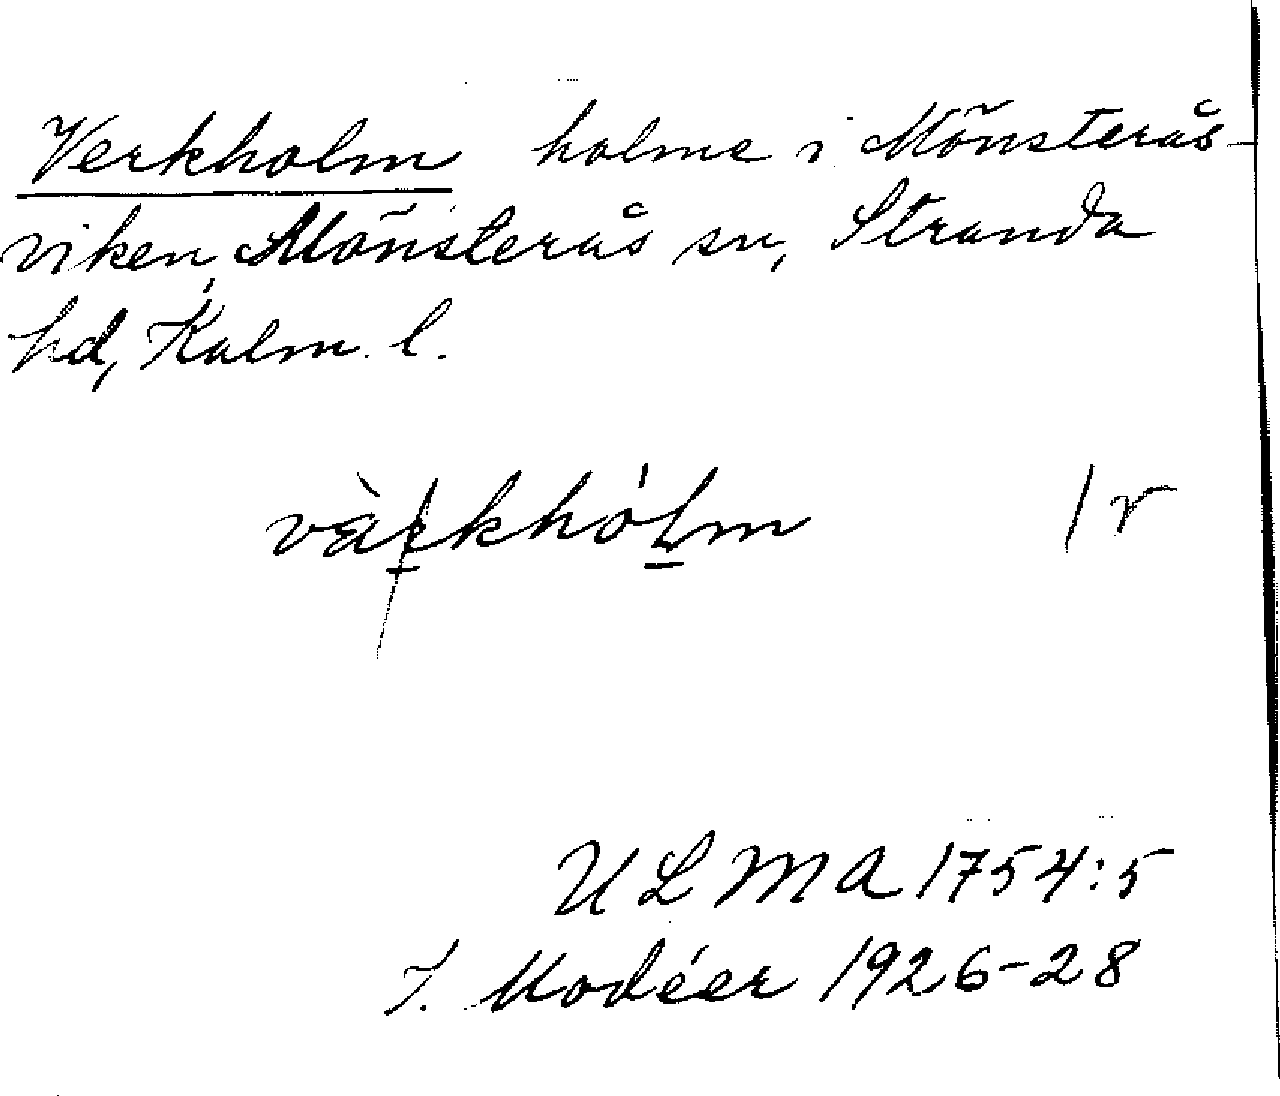 Verkholm holme i Mönsterås-
viken, Mönsterås sn, Stranda
hd, Kalm. l.
vàrkhólm / r
ULMA 1754:5
I. Modéer 1926-28